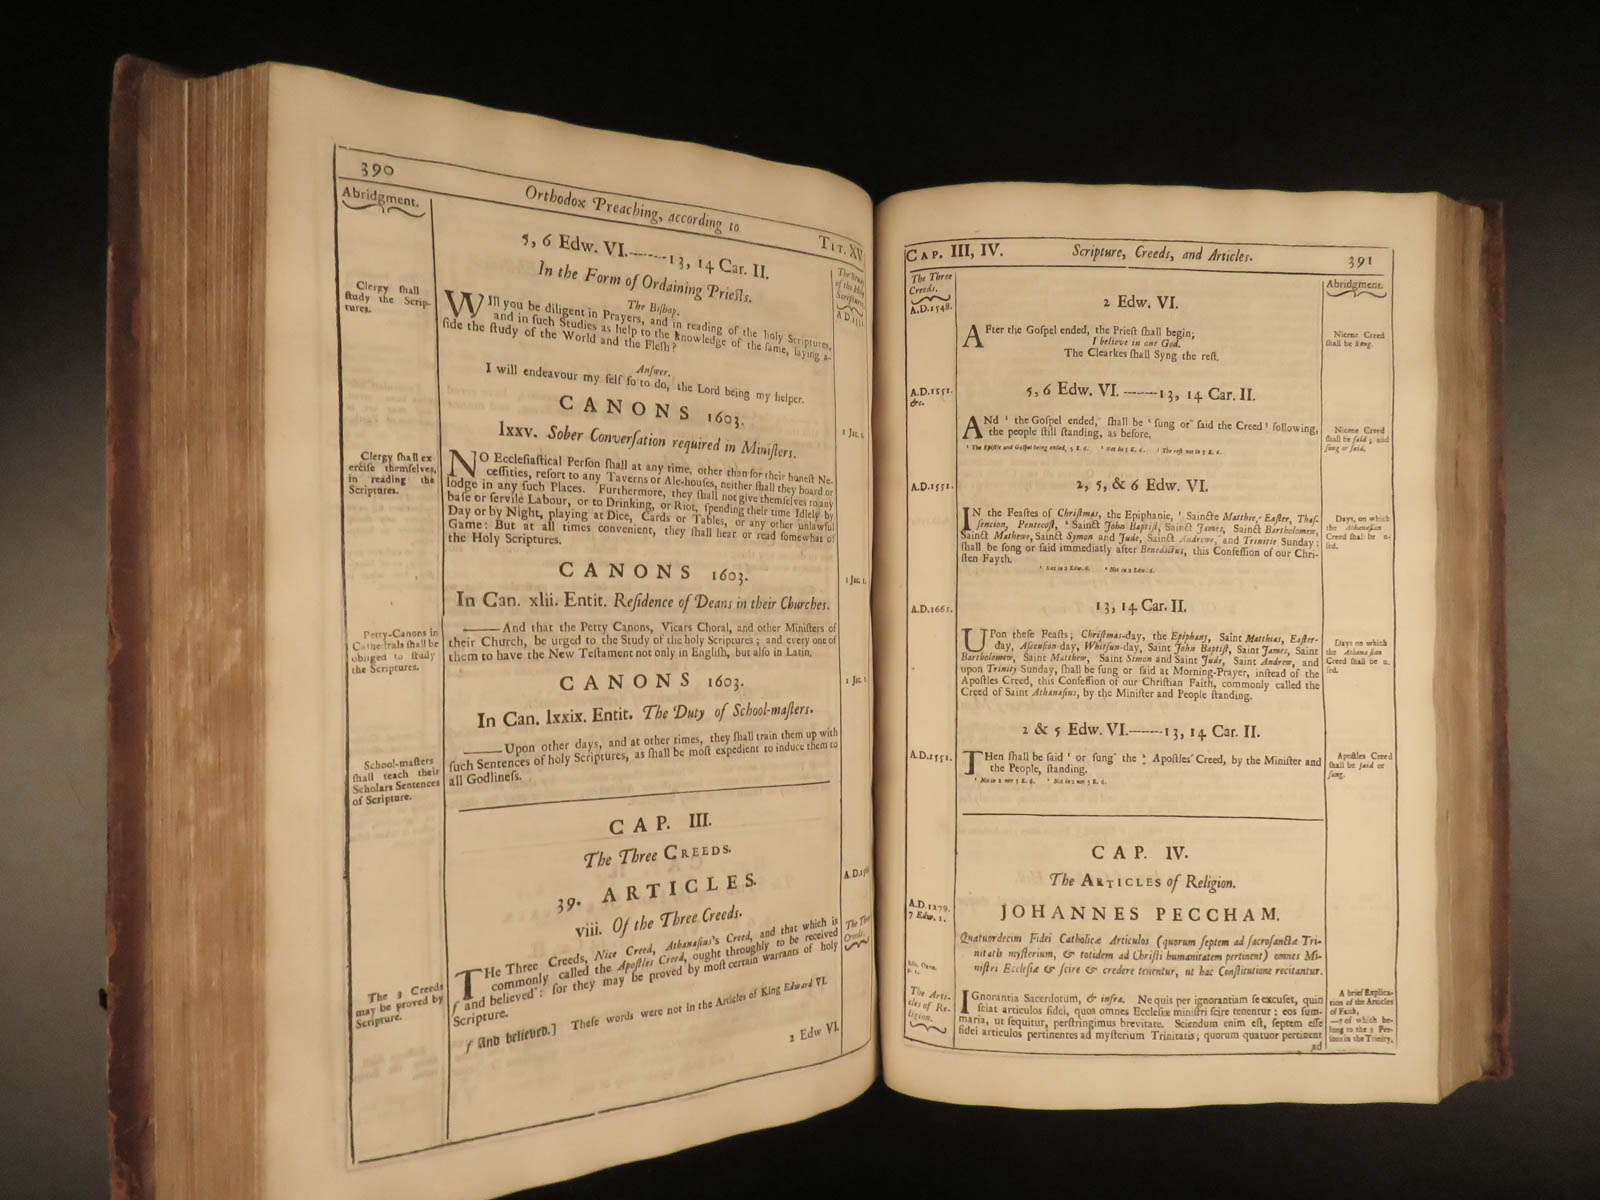 390
Orthodox Preaching, according to
TIT. XV
Abridgment.
5, 6 Edw. VI.------13, 14 Car. II.
In the Form of Ordaining Prieſts.
The Biſhop.
Clergy ſhall
ſtudy the Scrip-
tures.
WIll you be diligent in Prayers, and in reading of the holy Scriptures,
and in ſuch Studies as help to the knowledge of the ſame, laying a-
ſide the ſtudy of the World and the Fleſh?
Anſwer.
I will endeavour my ſelf ſo to do, the Lord being my helper.
CANONS 1603.
1 Jac. 1.
lxxv. Sober Converſation required in Miniſters.
Clergy ſhall ex
erciſe themſelves,
in reading the
Scriptures.
NO Eccleſiaſtical Perſon ſhall at any time, other than for their honeſt Ne-
ceſſities, reſort to any Taverns or Ale-houſes, neither ſhall they board or
lodge in any ſuch Places. Furthermore, they ſhall not give themſelves to any
baſe or ſervile Labour, or to Drinking, or Riot, ſpending their time Idlely by
Day or by Night, playing at Dice, Cards or Tables, or any other unlawful
Game: But at all times convenient, they ſhall hear or read ſomewhat of
the Holy Scriptures.
CANONS 1603.
1 Jac. 1.
In Can. xlii. Entit. Reſidence of Deans in their Churches.
Petty-Canons in
Cathedrals ſhall be
obliged to ſtudy
the Scriptures.
——And that the Petty Canons, Vicars Choral, and other Miniſters of
their Church, be urged to the Study of the holy Scriptures; and every one of
them to have the New Teſtament not only in Engliſh, but alſo in Latin.
CANONS 1603.
1 Jac. 1.
In Can. lxxix. Entit. The Duty of School-maſters.
School-maſters
ſhall teach their
Scholars Sentences
of Scripture.
——Upon other days, and at other times, they ſhall train them up with
ſuch Sentences of holy Scriptures, as ſhall be moſt expedient to induce them to
all Godlineſs.
CAP. III.
The Three CREEDS.
39. ARTICLES.
viii. Of the Three Creeds.
The 3 Creeds
may be proved by
Scripture.
THe Three Creeds, Nice Creed, Athanaſius's Creed, and that which is
commonly called the Apoſtles Creed, ought throughly to be received
ſ and believed": for they may be proved by moſt certain warrants of holy
Scripture.
ſ And believed.] Theſe words were not in the Articles of King Edward VI.
2 Edw VI.
CAP. III, IV.
Scripture, Creeds, and Articles.
391
The Three
Creeds.
Abridgment.
A.D.1548.
2 Edw. VI.
Nicene Creed
ſhall be ſung.
AFter the Goſpel ended, the Prieſt ſhall begin;
I believe in one God.
The Clearkes ſhall Syng the reſt.
A.D.1551.
&c.
5, 6 Edw. VI. ------13, 14 Car. II.
Nicene Creed
ſhall be ſaid; and
ſung or ſaid.
ANd ' the Goſpel ended,' ſhall be ' ſung or' ſaid the Creed ' following,
the people ſtill ſtanding, as before.
' The Epiſtle and Goſpel being ended, 5 E. 6. ' Not in 5 E. 6. ' The reſt not in 5 E. 6.
A.D.1551.
2, 5, & 6 Edw. VI.
Days, on which
the Athanaſian
Creed ſhall be u-
ſed.
IN the Feaſtes of Chriſtmas, the Epiphanie, ' Saincte Matthie, Eaſter, Thaſ-
ſencion, Pentecoſt, ' Sainct John Baptiſt, Sainct James, Sainct Bartholomew,
Sainct Mathewe, Sainct Symon and Jude, Sainct Andrewe,' and Trinitie Sunday:
ſhall be ſong or ſaid immediatly after Benedictus, this Confeſſion of our Chri-
ſten Fayth.
' Not in 2 Edw. 6. ' Not in 2 Edw. 6.
A.D.1661.
13, 14 Car. II.
Days on which
the Athanaſian
Creed ſhall be u.
ſed.
UPon theſe Feaſts; Chriſtmas-day, the Epiphany, Saint Matthias, Eaſter-
day, Aſcenſion-day, Whitſun-day, Saint John Baptiſt, Saint James, Saint
Bartholomew, Saint Matthew, Saint Simon and Saint Jude, Saint Andrew, and
upon Trinity Sunday, ſhall be ſung or ſaid at Morning-Prayer, inſtead of the
Apoſtles Creed, this Confeſſion of our Chriſtian Faith, commonly called the
Creed of Saint Athanaſius, by the Miniſter and People ſtanding.
2 & 5 Edw. VI.------13, 14 Car. II.
A.D.1551.
Apoſtles Creed
ſhall be ſaid or
ſung.
THen ſhall be ſaid ' or ſung' the Apoſtles' Creed, by the Miniſter and
the People, ſtanding.
' Not in 2 nor 5 E. 6. ' Not in 2 nor 5 E. 6.
CAP. IV.
The ARTICLES of Religion.
A.D.1279.
7 Edw. 1.
JOHANNES PECCHAM.
Quatuordecim Fidei Catholicæ Articulos (quorum ſeptem ad ſacroſanctæ Tri-
nitatis myſterium, & totidem ad Chriſti humanitatem pertinent) omnes Mi-
niſtri Eccleſiæ & ſcire & credere tenentur, ut hac Conſtitutione recitantur.
The Arti-
cles of Re-
ligion.
A brief Explica-
tion of the Articles
of Faith,
—7 of which be-
long to the 3 Per-
ſons in the Trinity.
IGnorantia Sacerdotum, & infra. Ne quis per ignorantiam ſe excuſet, quin
ſciat articulos fidei, quos omnes Eccleſiæ miniſtri ſcire tenentur: eos ſum-
maria, ut ſequitur, perſtringimus brevitate. Sciendum enim eſt, ſeptem eſſe
fidei articulos pertinentes ad myſterium Trinitatis; quorum quatuor pertinent
ad